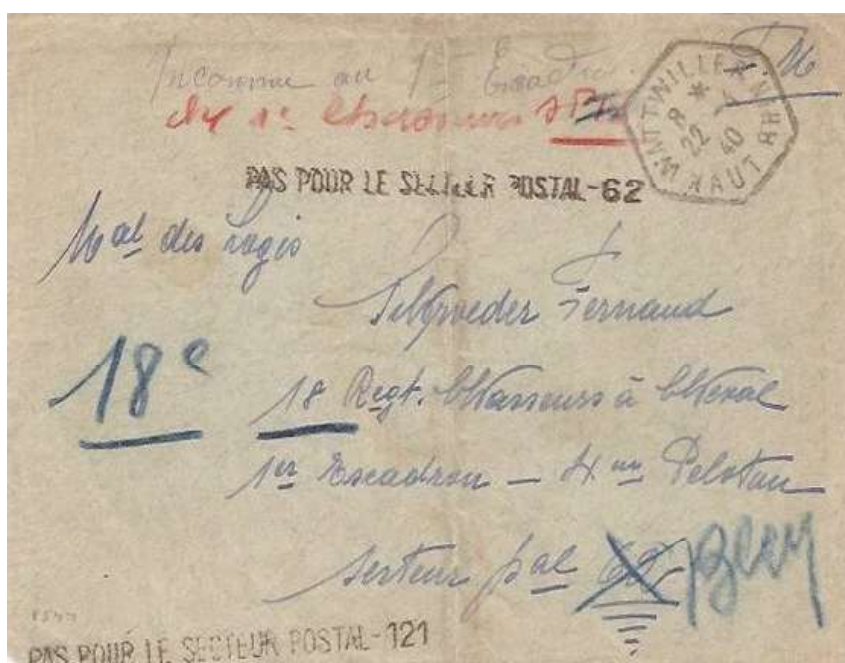 F.M
Inconnu au 1er Escadron
du 1er Chasseurs
WATTWILLER HAUT RHIN
8 *
22 - 1
40
PAS POUR LE SECTEUR POSTAL-62
Mal des Logis
Fernand
18e
18 Regt. Chasseurs à Cheval
1er Escadron - 4me Peloton
Secteur pal
PAS POUR LE SECTEUR POSTAL-121